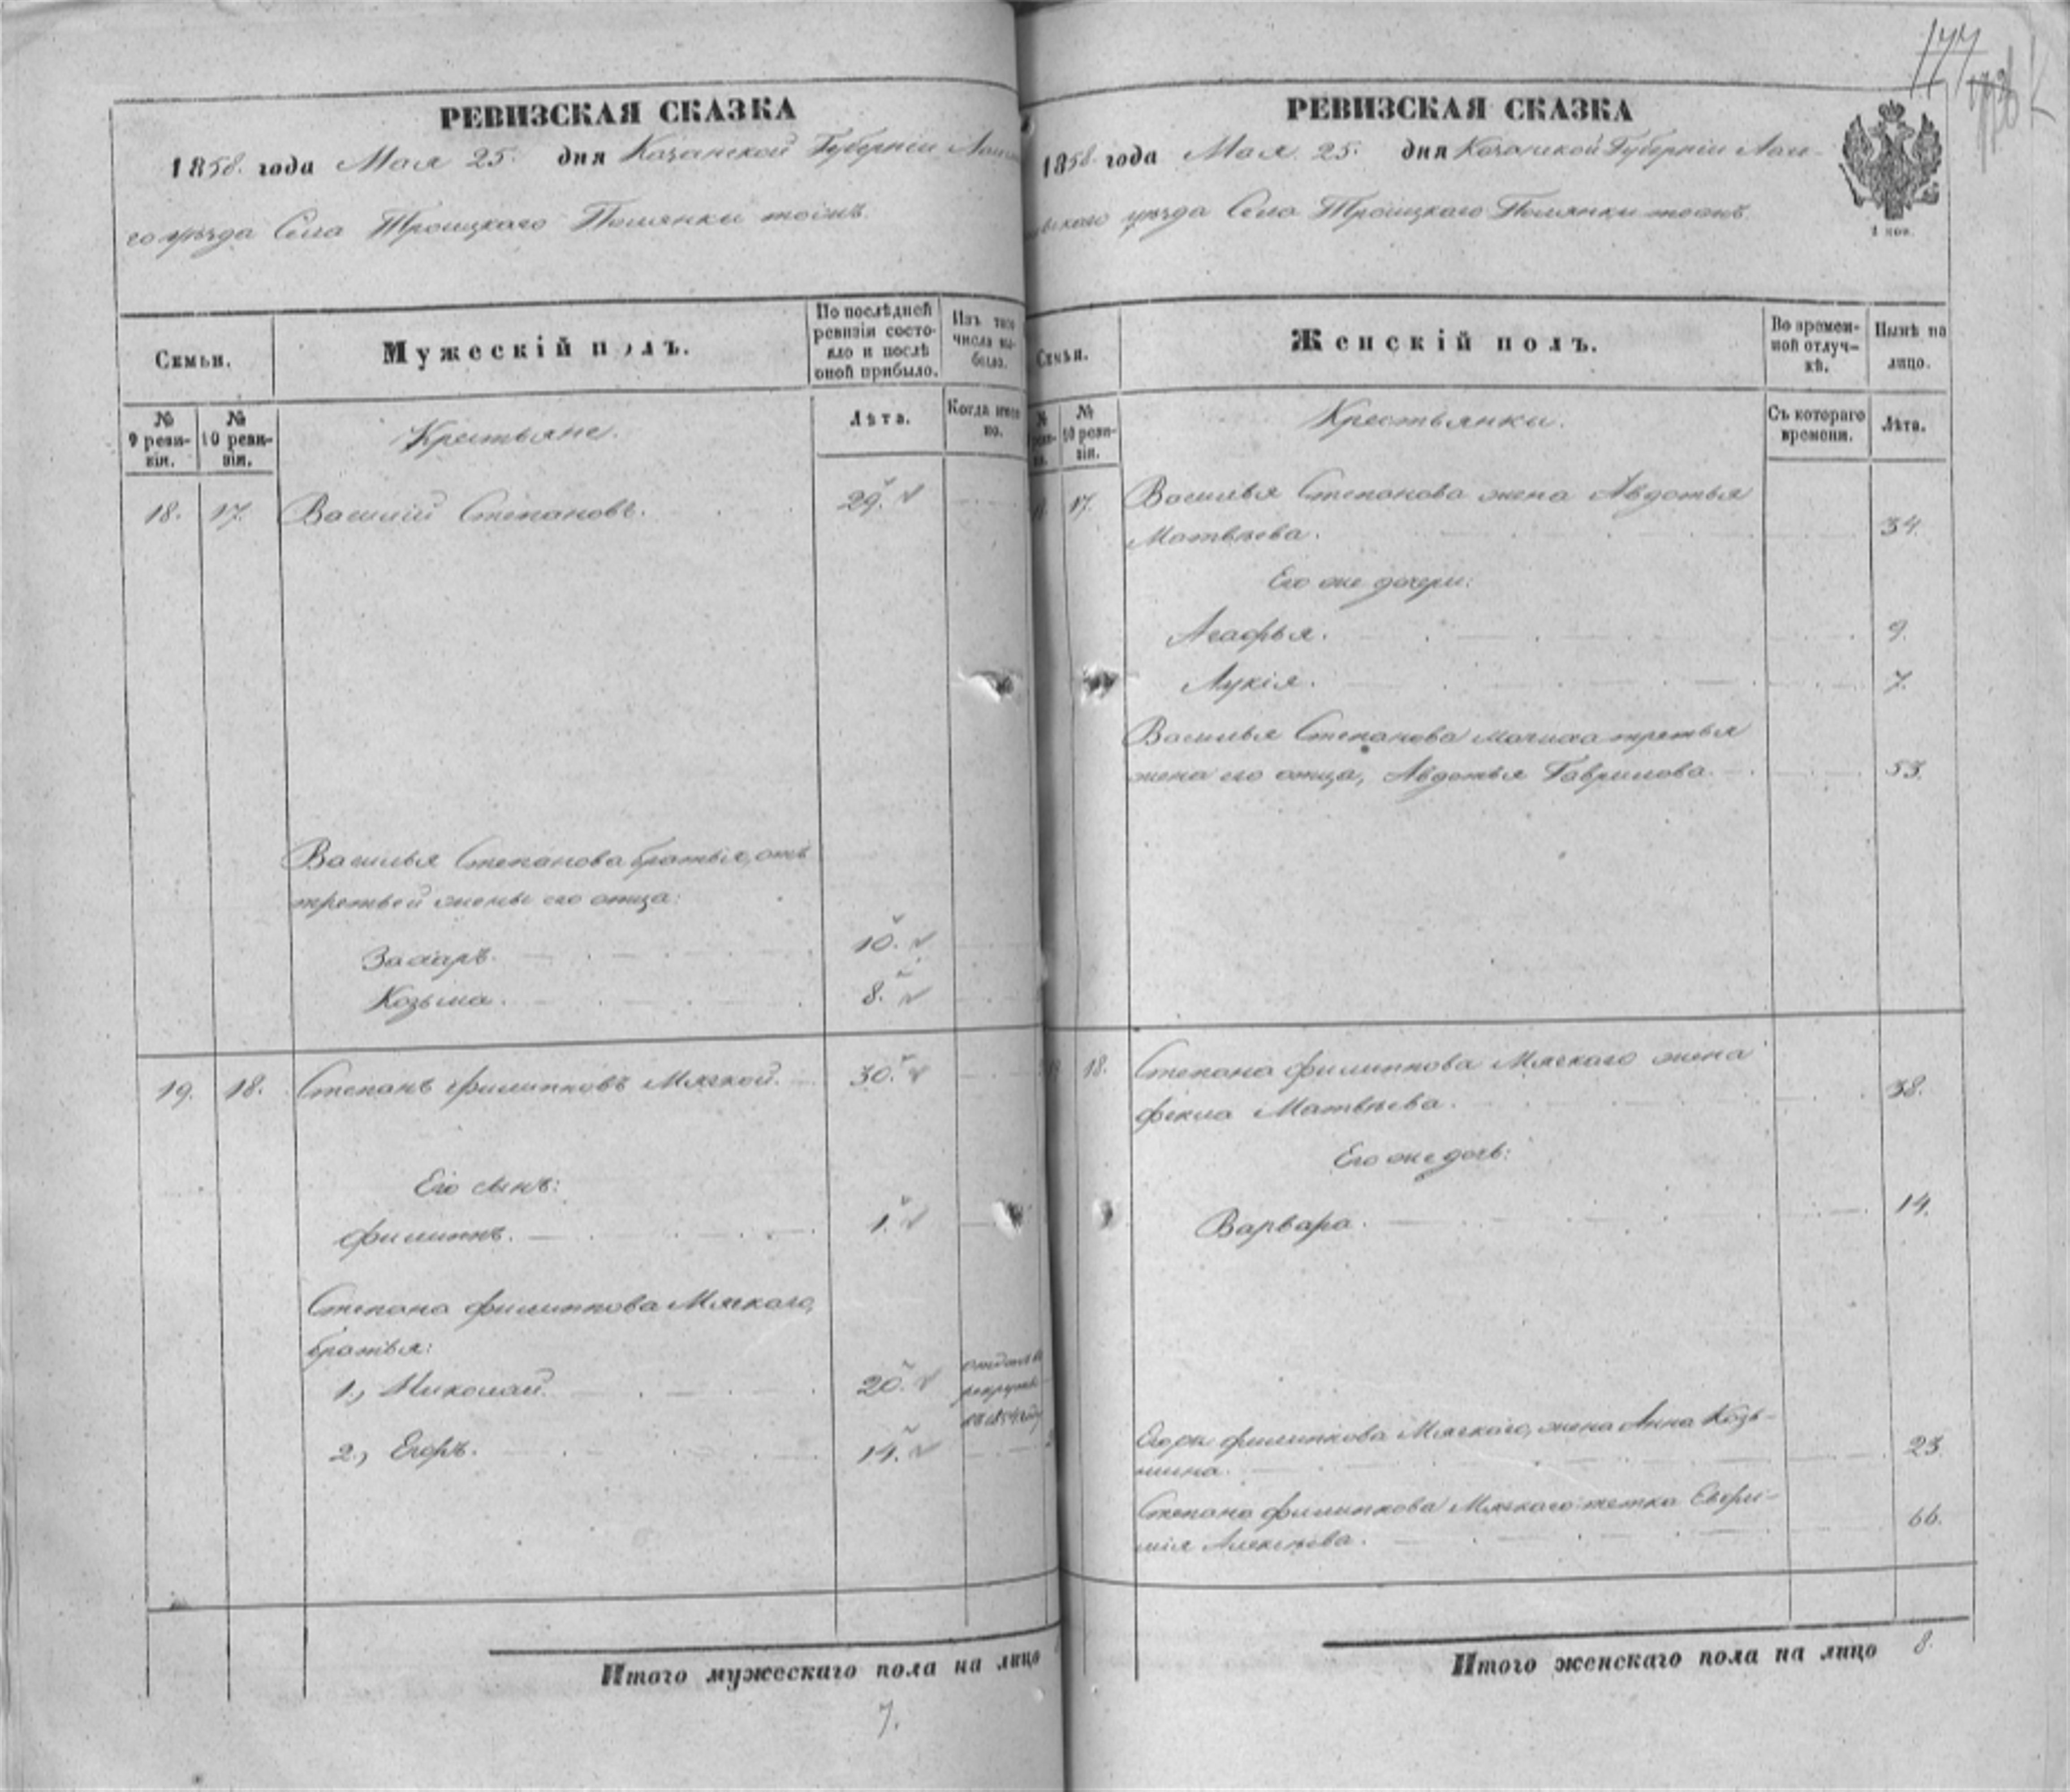 РЕВИЗСКАЯ СКАЗКА
1858. года Мая 25. дня Казанской Губерніи Лаи
го уѣзда Села Троицкаго Полянки тожъ.
Семьи.
Мужескій полъ.
По послѣдней ревизіи состо-
яло и послѣ
оной прибыло.
Изъ того
числа вы-
было.
№
9 реви-
зіи.
№
10 реви-
зіи.
Крестьяне.
Лѣта.
Когда имен
но.
18. 17. Василій Степановъ. 29.
Василья Степанова братья, отъ
третьей жены его отца:
Захаръ. 10.
Козьма. 8.
19. 18. Степанъ Филипповъ Мягкой. 30.
Его сынъ:
Филиппъ. 1.
Степана Филиппова Мягкаго,
братья:
1., Николай. 20. отданъ въ
рекруты
въ 1854 году
2., Егоръ. 14.
Итого мужескаго пола на лицо
7.
177
РЕВИЗСКАЯ СКАЗКА
1858. года Мая 25. дня Казанской Губерніи Лаи-
шевскаго уѣзда Села Троицкаго Полянки тожъ.
1 коп.
Семьи.
Женскій полъ.
Во времен-
ной отлуч-
кѣ.
Нынѣ на
лицо.
№
реви-
зіи.
№
10 реви-
зіи.
Крестьянки.
Съ котораго
времени.
Лѣта.
17. Василья Степанова жена Авдотья
Матвѣева. 34.
Его же дочери:
Агафья. 9.
Лукія. 7.
Василья Степанова мачиха третья
жена его отца, Авдотья Гаврилова. 53.
18. Степана Филиппова Мягкаго жена
Фекла Матвѣева. 38.
Его же дочь:
Варвара. 14.
Егора Филиппова Мягкаго, жена Анна Козь-
мина. 23.
Степана Филиппова Мягкаго тетка Евфи-
мія Алексѣева. 66.
Итого женскаго пола на лицо 8.